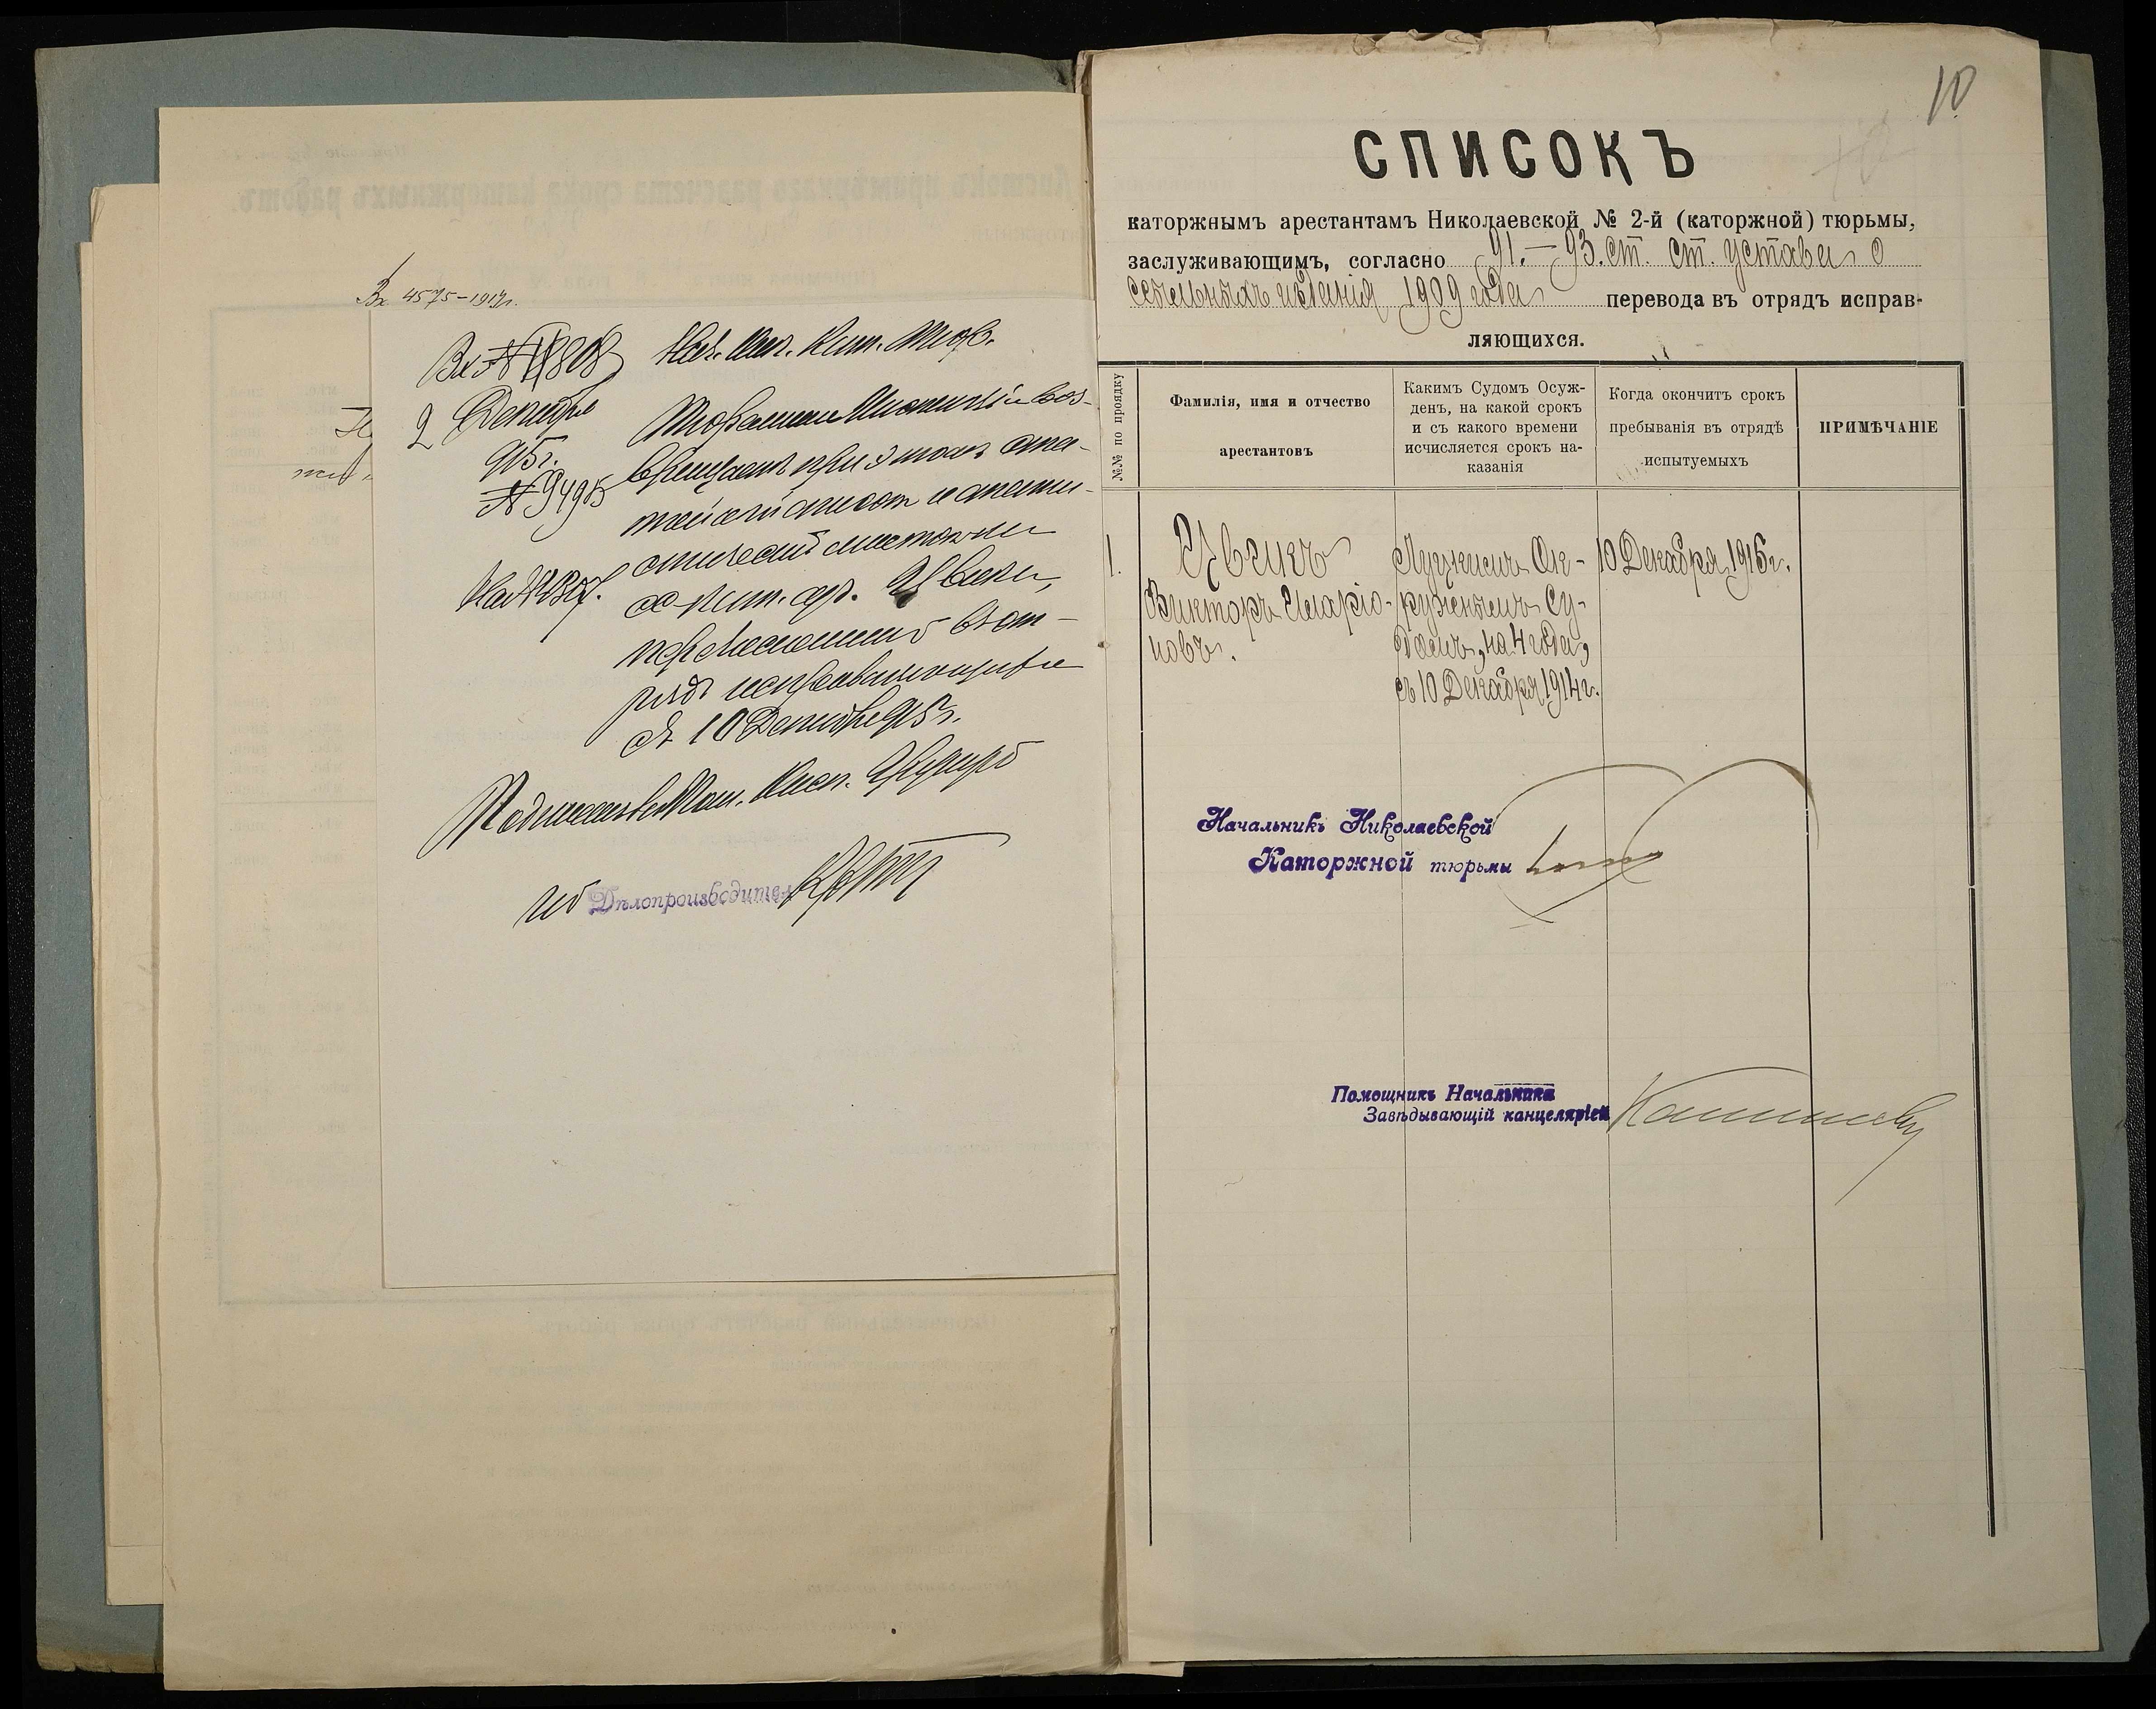 Вх 4575–1917г.
Вх № 11808
2 Декабря
915 г.
№ 9495
На № 4307.
Нач. Ник. Кат. Тюр.
Тюремная Инспекція воз-
вращаетъ при этомъ ста-
тейный списокъ и статис-
тическій листокъ на
с-кат. ар. Цвика,
перечисленнаго въ от-
рядъ исправляющихся
съ 10 Декабря 915 г.
Подписалъ Пом. Инсп.
иб Дѣлопроизводител
10
СПИСОКЪ
каторжнымъ арестантамъ Николаевской № 2-й (каторжной) тюрьмы,
заслуживающимъ, согласно 91.–93. ст. ст. устава о
ссыльныхъ изданія 1909 года перевода въ отрядъ исправ-
ляющихся.
№№ по порядку
Фамилія, имя и отчество
арестантовъ
Какимъ Судомъ Осуж-
денъ, на какой срокъ
и съ какого времени
исчисляется срокъ на-
казанія
Когда окончитъ срокъ
пребыванія въ отрядѣ
испытуемыхъ
ПРИМѢЧАНІЕ
1.
Цвикъ
Викторъ Иларіо-
новъ.
Луцкимъ Ок-
ружнымъ Су-
домъ, на 4 года,
съ 10 Декабря 1914 г.
10 Декабря 1916 г.
Начальникъ Николаевской
Каторжной тюрьмы
Помощникъ Начальника
Завѣдывающій канцеляріей